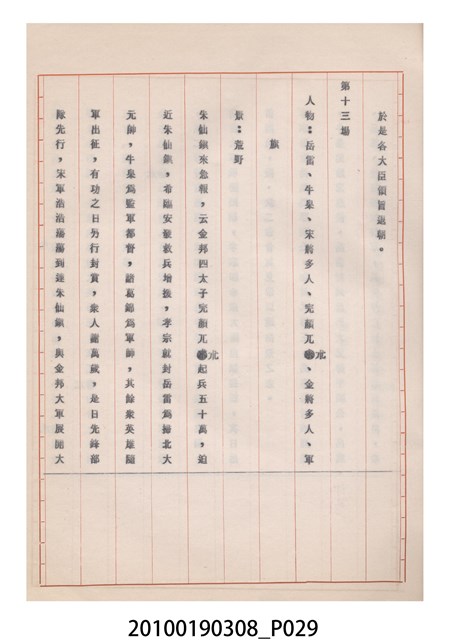 於是各大臣領旨退朝。
第十三場
人物：岳雷、牛皋、宋將多人、完顏兀朮、金將多人、軍
旗
景：荒野
朱仙鎮來急報，云金邦四太子完顏兀朮起兵五十萬，迫
近朱仙鎮，希臨安發救兵增援，孝宗就封岳雷為掃北大
元帥，牛皋為監軍都督，諸葛錦為軍師，其餘衆英雄隨
軍出征，有功之日另行封賞，衆人謝萬歲，是日先鋒部
隊先行，宋軍浩浩蕩蕩到達朱仙鎮，與金邦大軍展開大
20100190308_P029